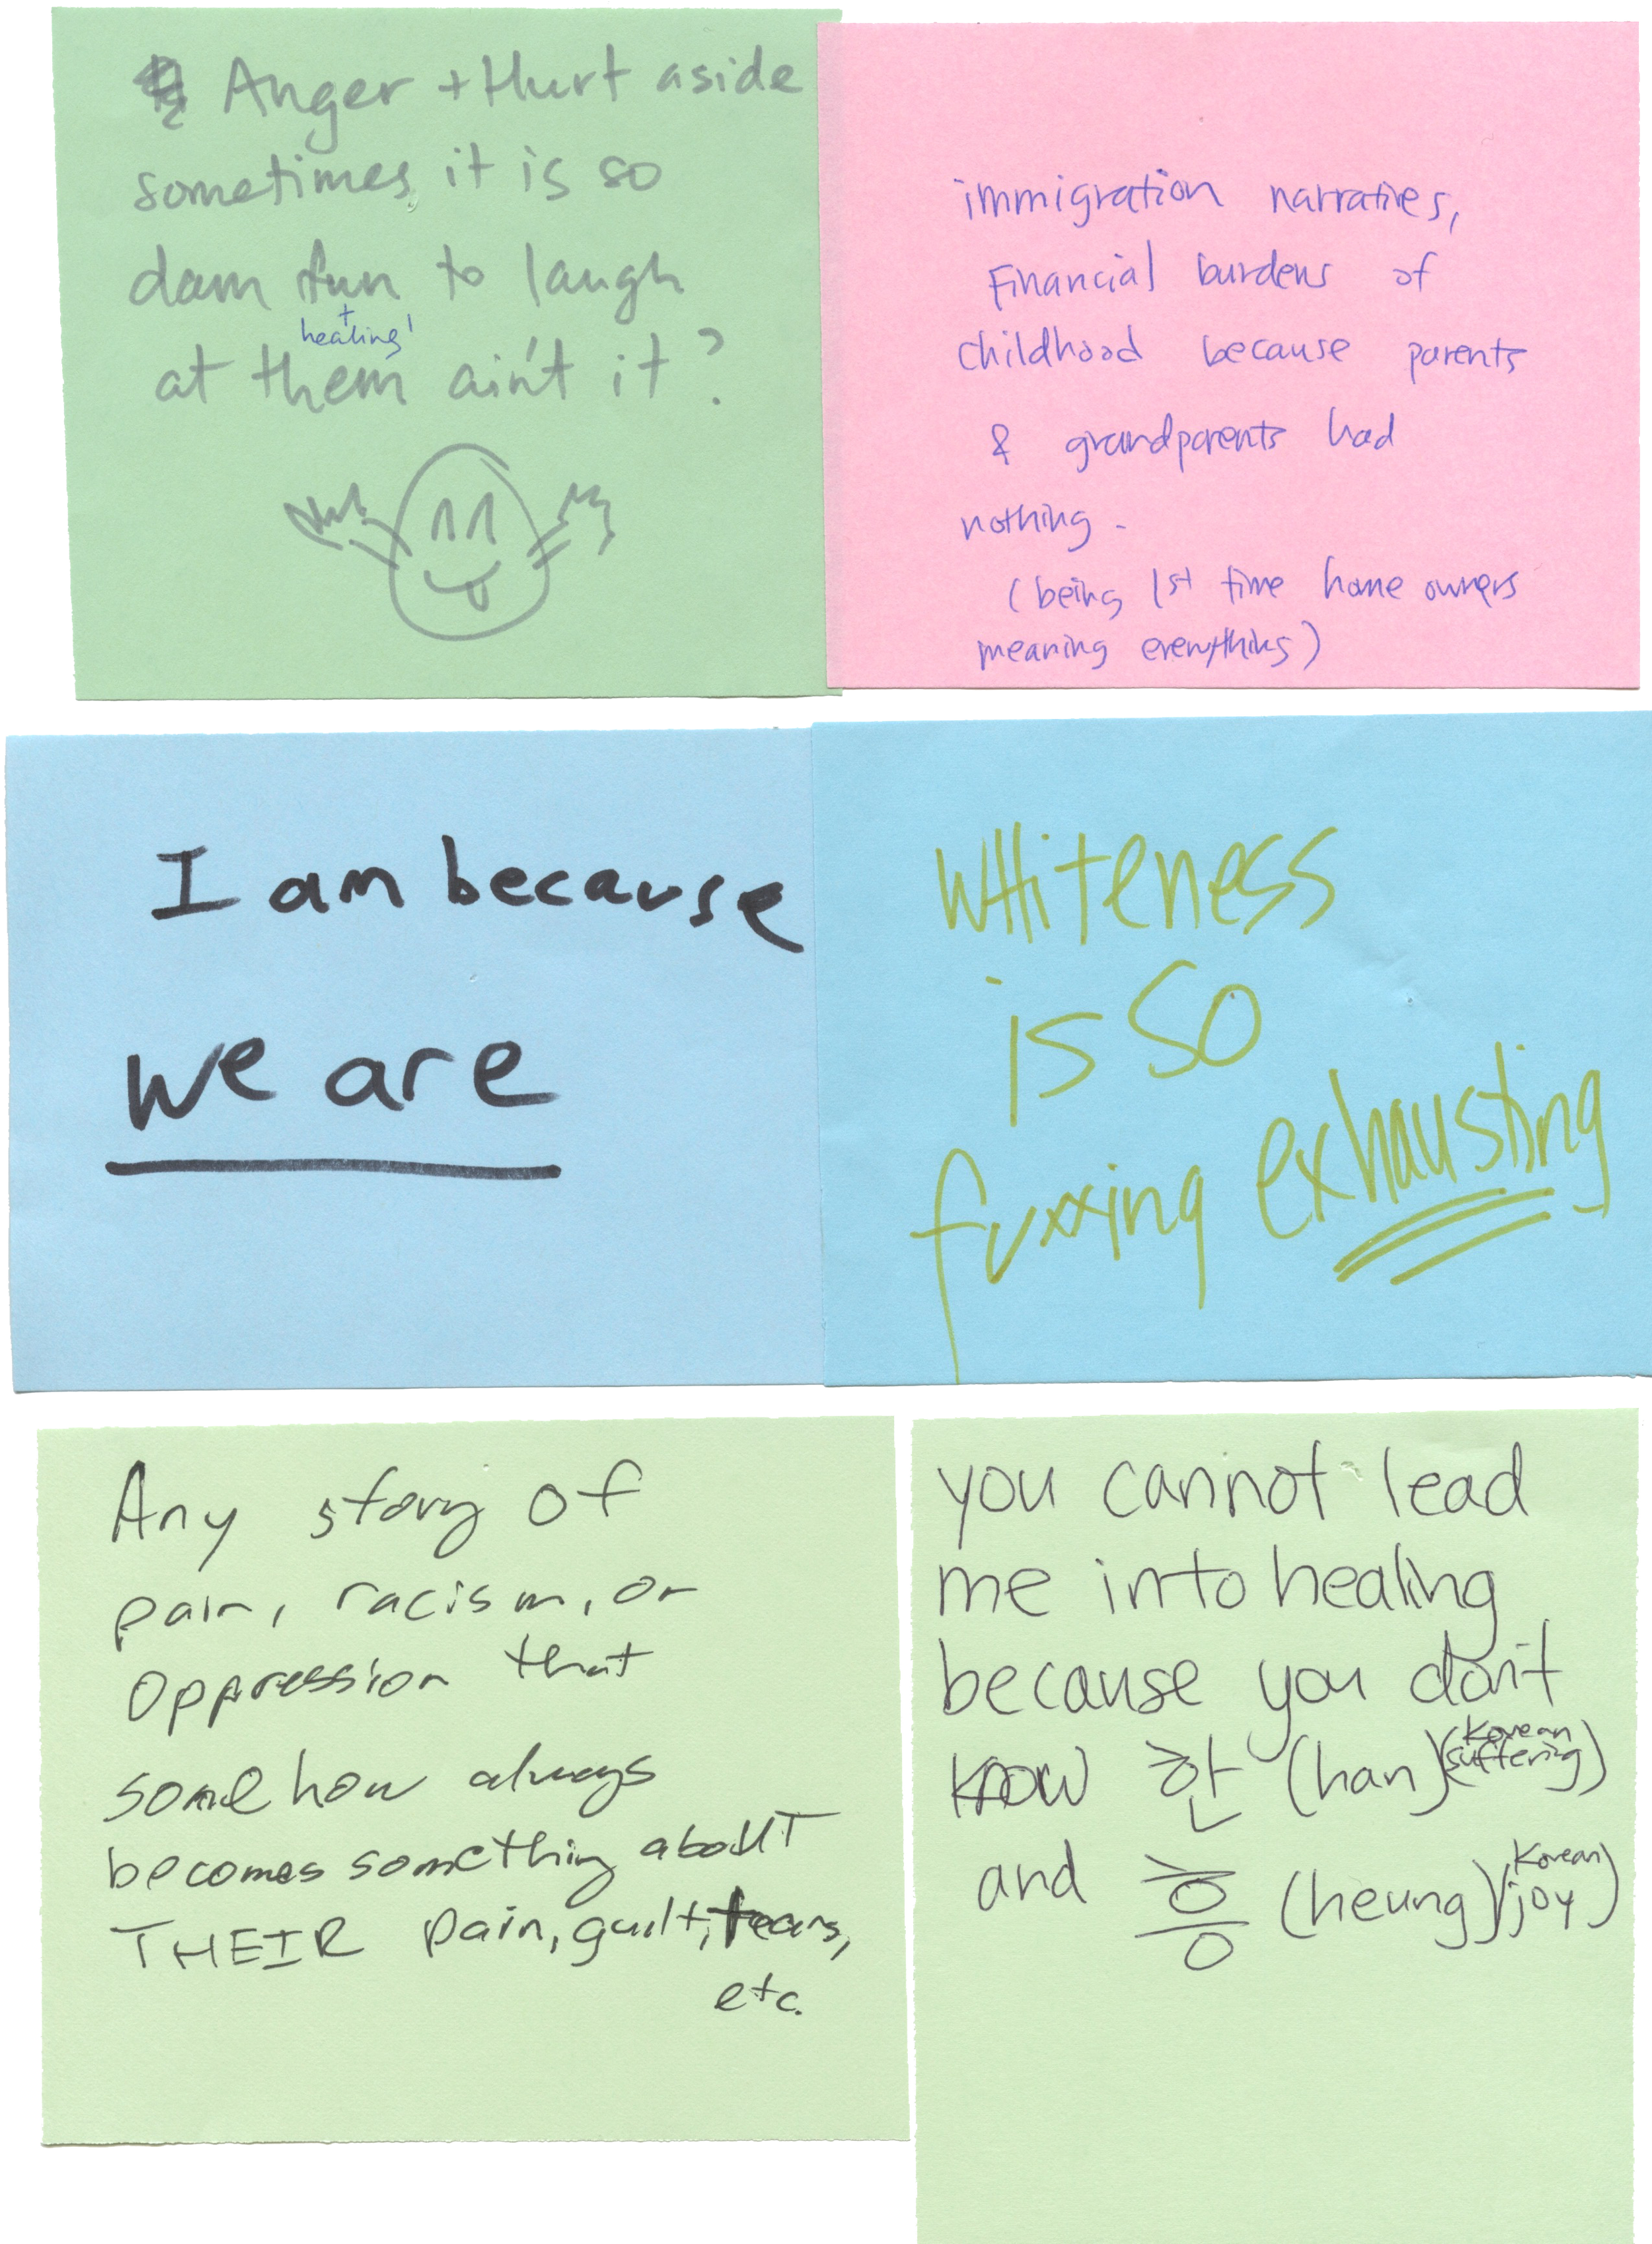 Anger + Hurt aside
sometimes, it is so
dam fun to laugh
+ healing!
at them ain't it?
immigration narratives,
Financial burdens of
childhood because parents
& grandparents had
nothing -
(being 1st time home owners
meaning everything)
I am because
we are
WHiteness
is so
fuxxing exhausting
Any story of
pain, racism, or
oppression that
somehow always
becomes something about
THEIR pain, guilt, tears,
etc.
you cannot lead
me into healing
because you don't
know 한 (han) (Korean suffering)
and 흥 (heung) (Korean joy)